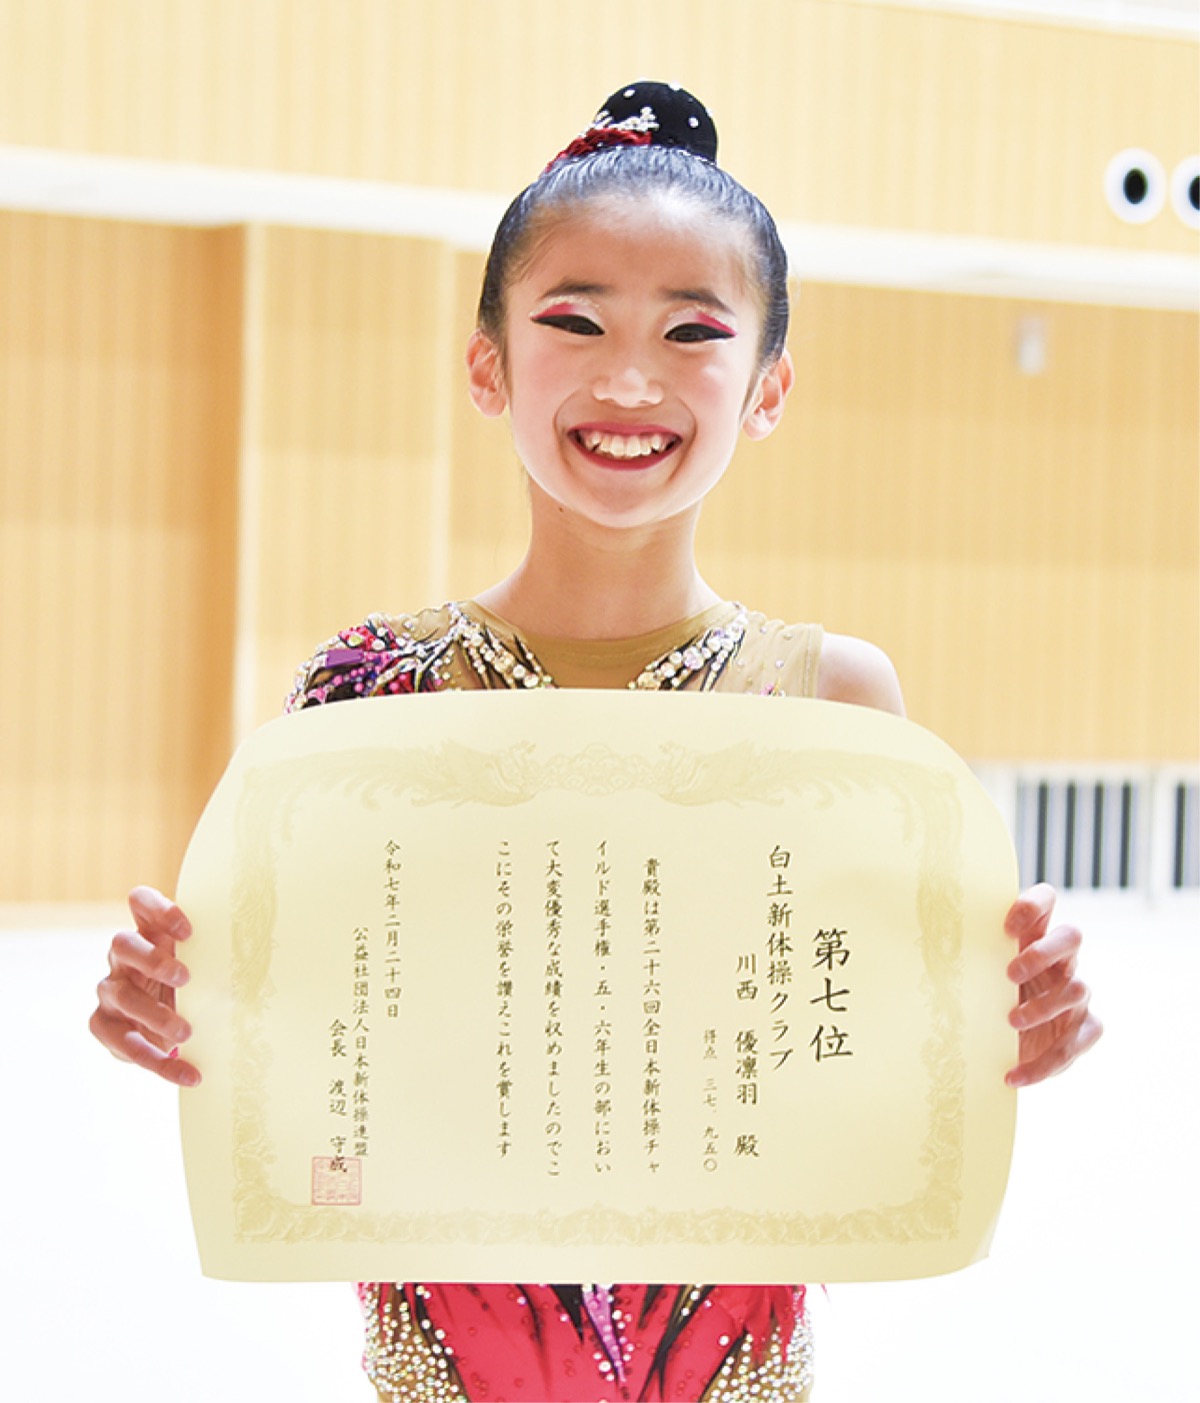 第七位
白土新体操クラブ
川西 優凛羽 殿
得点 三七．九五〇
貴殿は第二十六回全日本新体操チャ
イルド選手権・五・六年生の部におい
て大変優秀な成績を収めましたのでこ
こにその栄誉を讃えこれを賞します
令和七年二月二十四日
公益社団法人日本新体操連盟
会長 渡辺 守成